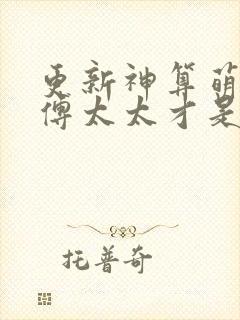 更新神算萌
傅太太才是
托普奇